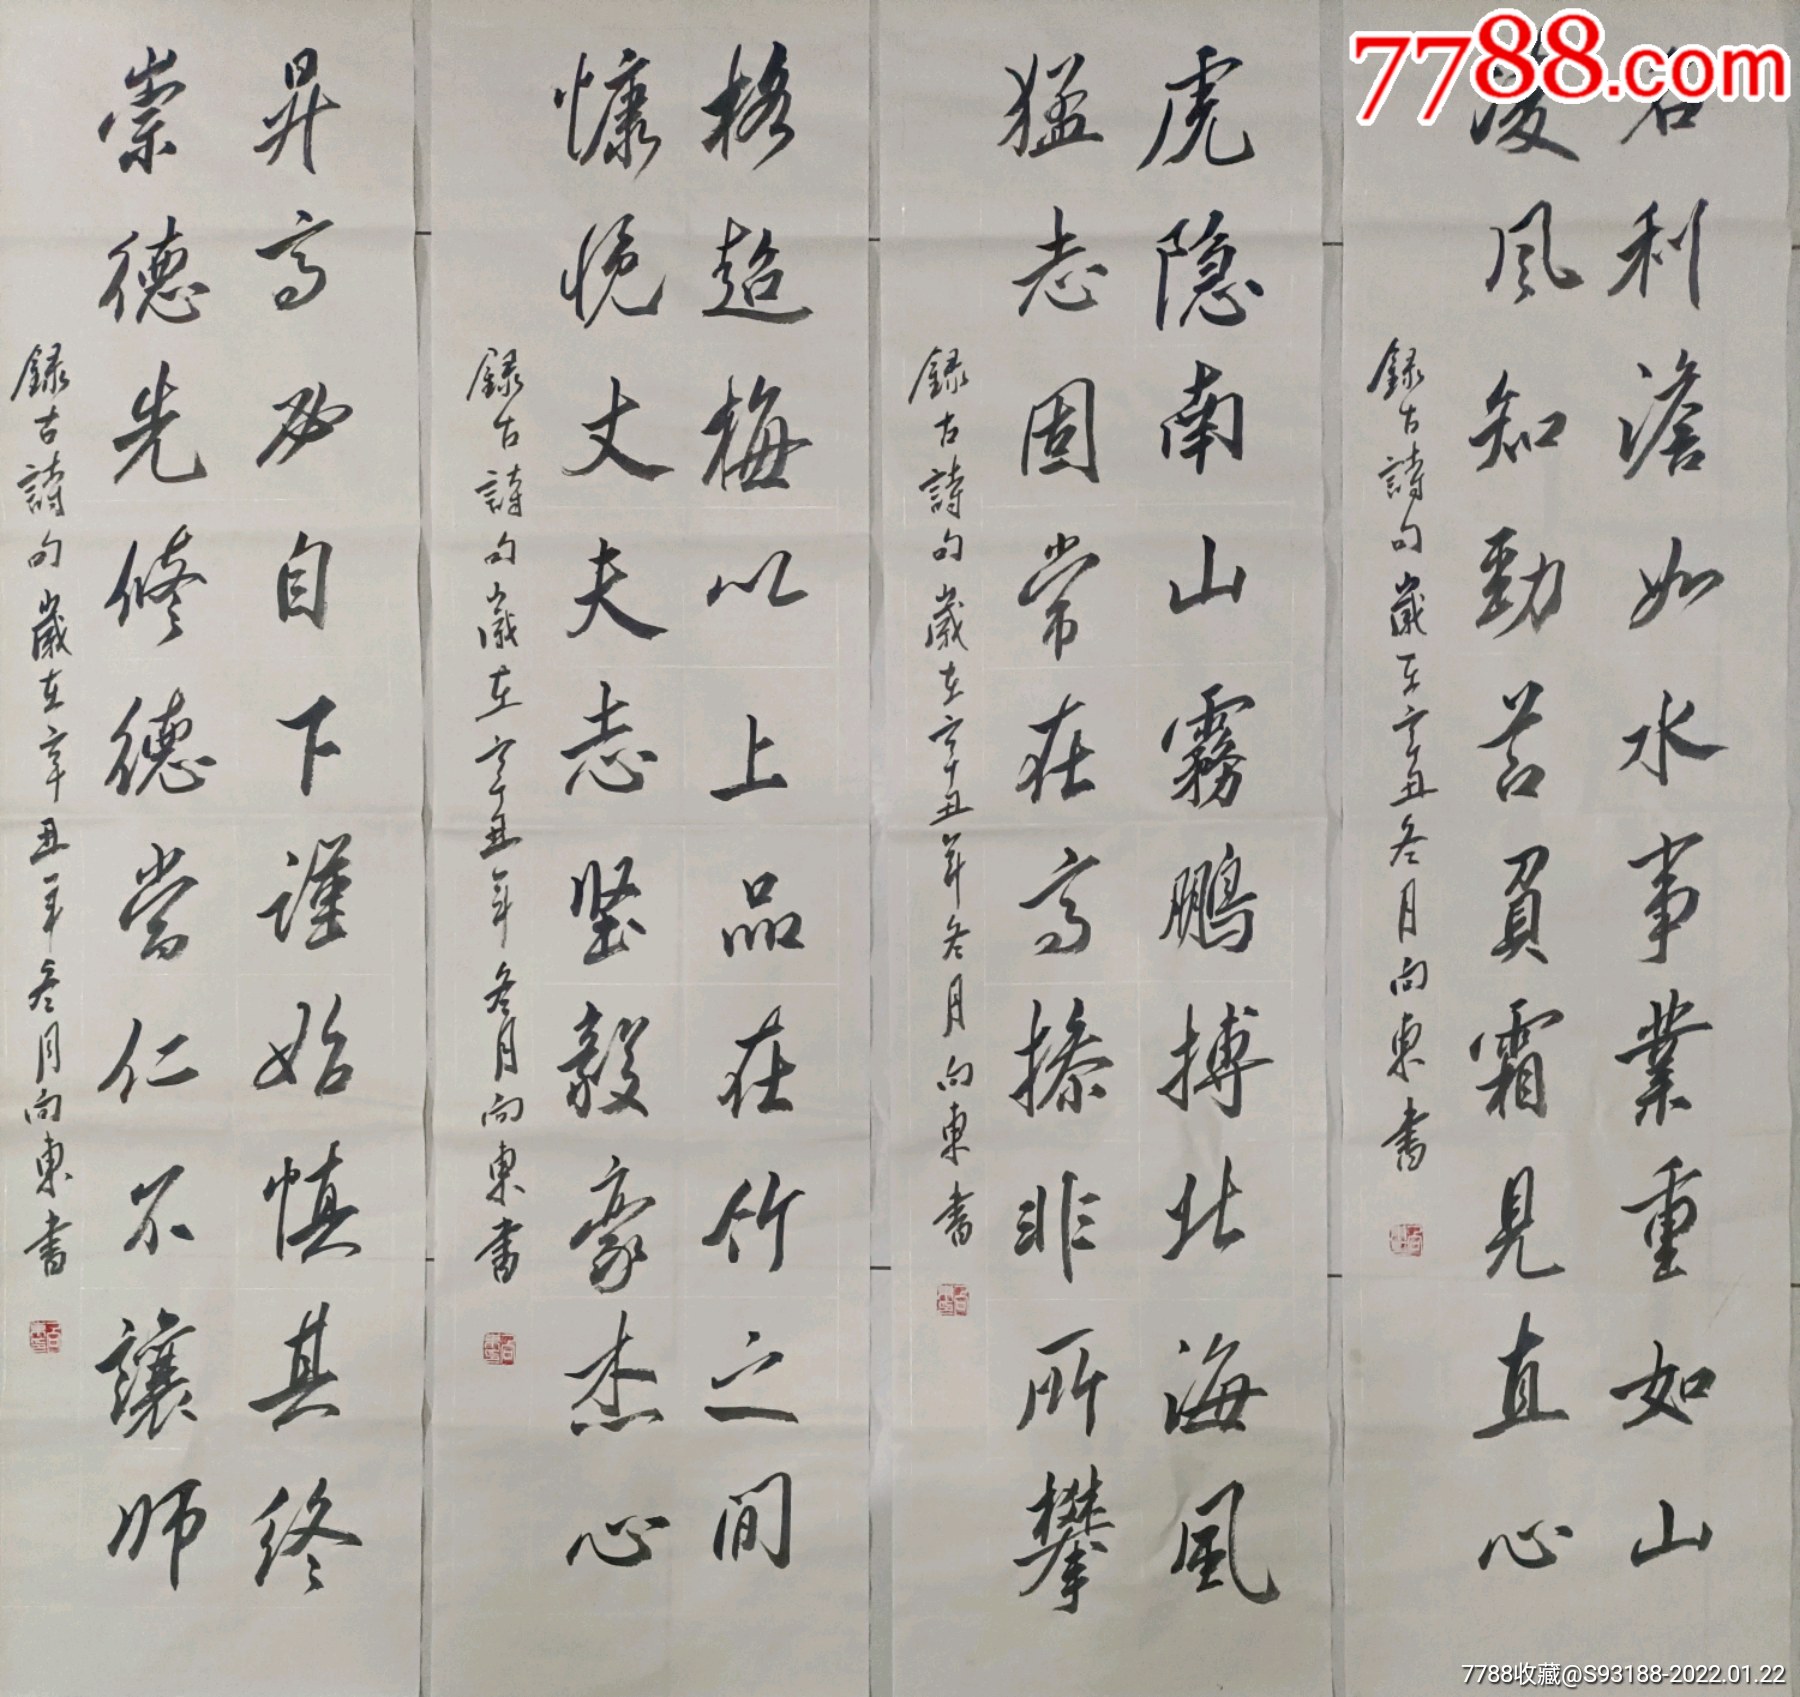 7788.com
名利澹如水事業重如山
凌风知勁节負霜見直心
録古詩句歲在辛丑冬月向東書
虎隐南山霧鵬搏北海風
猛志固常在高操非所攀
録古詩句歲在辛丑年冬月向東書
格超梅以上品在竹之間
慷慨丈夫志坚毅豪杰心
録古詩句歲在辛丑年冬月向東書
昇高必自下謹始慎其終
崇德先修德當仁不讓師
録古詩句歲在辛丑年冬月向東書
7788收藏@S93188-2022.01.22